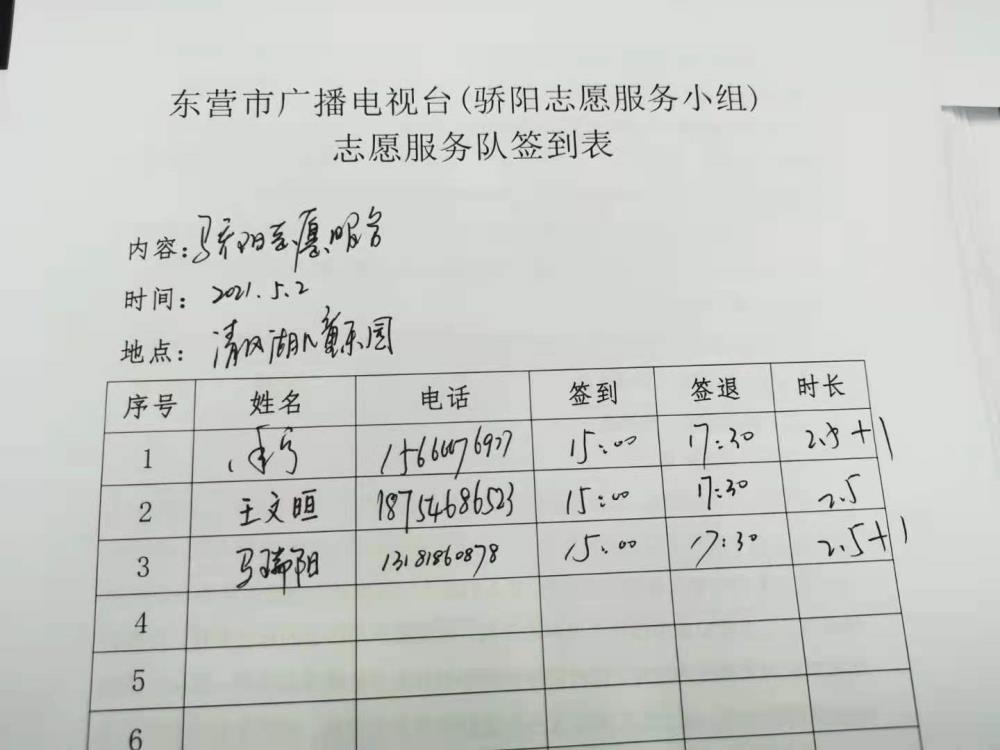 东营市广播电视台(骄阳志愿服务小组)
志愿服务队签到表
内容:骄阳志愿服务
时间: 2021.5.2
地点: 清风湖儿童乐园
序号 姓名 电话 签到 签退 时长
1 15:00 17:30 2.5+1
2 王文晅 18754686523 15:00 17:30 2.5
3 马瑞阳 13181860878 15:00 17:30 2.5+1
4
5
6